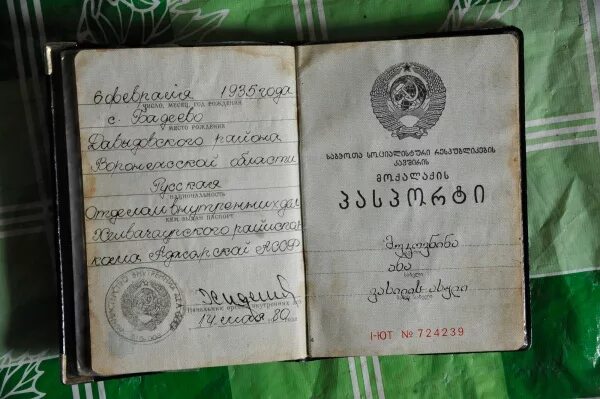 6 февраля 1935 года
ЧИСЛО, МЕСЯЦ, ГОД РОЖДЕНИЯ
с. Бадеево
МЕСТО РОЖДЕНИЯ
Давыдовского района
Воронежской области
Русская
НАЦИОНАЛЬНОСТЬ
Отделом внутренних дел
КЕМ ВЫДАН ПАСПОРТ
Хелвачаурского райиспол
кома Аджарской АССР
Начальник органа внутренних дел
14 мая 80 года
საბჭოთა სოციალისტური რესპუბლიკების
კავშირის
მოქალაქის
პასპორტი
ანა
სახელი
ვასილის ასული
I-ЮТ № 724239